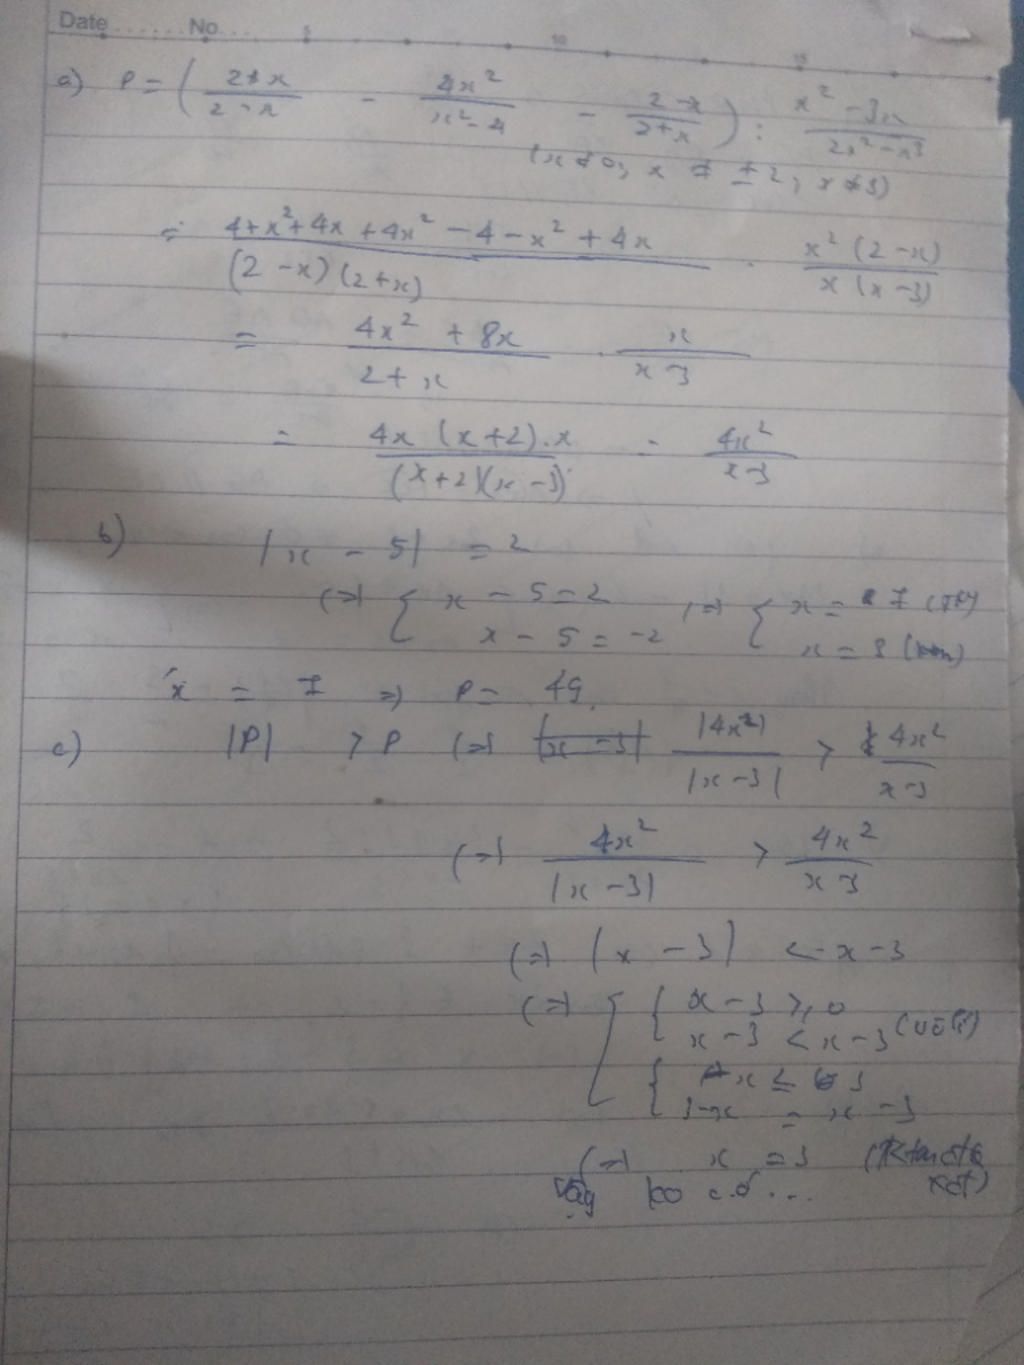 Date ........ No....
5 10 15
a) P = ( (2+x)/(2-x) - 4x²/(x²-4) - (2-x)/(2+x) ) : (x²-3x)/(2x²-x³)
(x ≠ 0; x ≠ ±2; x ≠ 3)
= (4+x²+4x+4x²-4-x²+4x)/((2-x)(2+x)) . x²(2-x)/(x(x-3))
= (4x²+8x)/(2+x) . x/(x-3)
= 4x(x+2).x/((x+2)(x-3)) = 4x²/(x-3)
b) |x - 5| = 2
(=) { x - 5 = 2 (=) { x = 7
x - 5 = -2 x = 3
x = 7 => P = 49.
c) |P| > P (=) |4x²|/|x-3| > 4x²/(x-3)
(=) 4x²/|x-3| > 4x²/(x-3)
(=) |x - 3| < x - 3
(=) [ { x - 3 ≥ 0
x - 3 < x - 3
{ x ≤ 3
3-x = x - 3
(=) x = 3
Vậy ko có ...